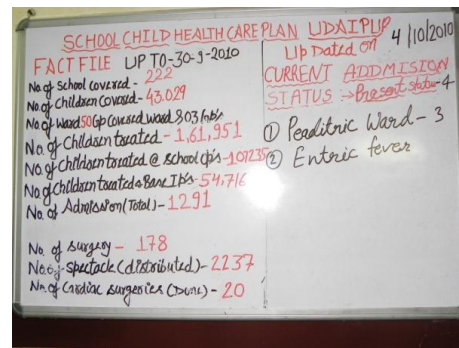 SCHOOL CHILD HEALTH CARE PLAN UDAIPUR
FACT FILE UP TO-30-9-2010
No. of school covered - 222
No. of Children Covered - 43.029
No. of Ward 50 Gp Covered ward 803
No. of Children treated - 1,61,951
No. of Children treated @ school - 107235
No. of Children treated - 54,716
No. of Admission (Total) - 1291
No. of Surgery - 178
No. of spectacle (distributed) - 2237
No. of Cardiac surgeries (Done) - 20
Up Dated on 4/10/2010
CURRENT ADDMISION
STATUS :→ Present status - 4
① Peaditric Ward - 3
② Entric fever